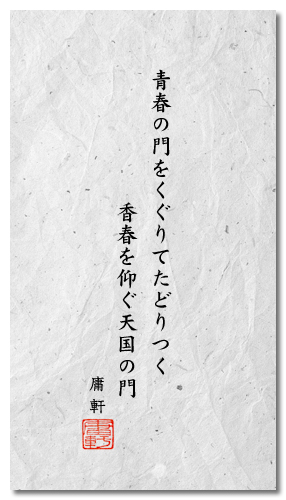 青春の門をくぐりてたどりつく
香春を仰ぐ天国の門
庸軒